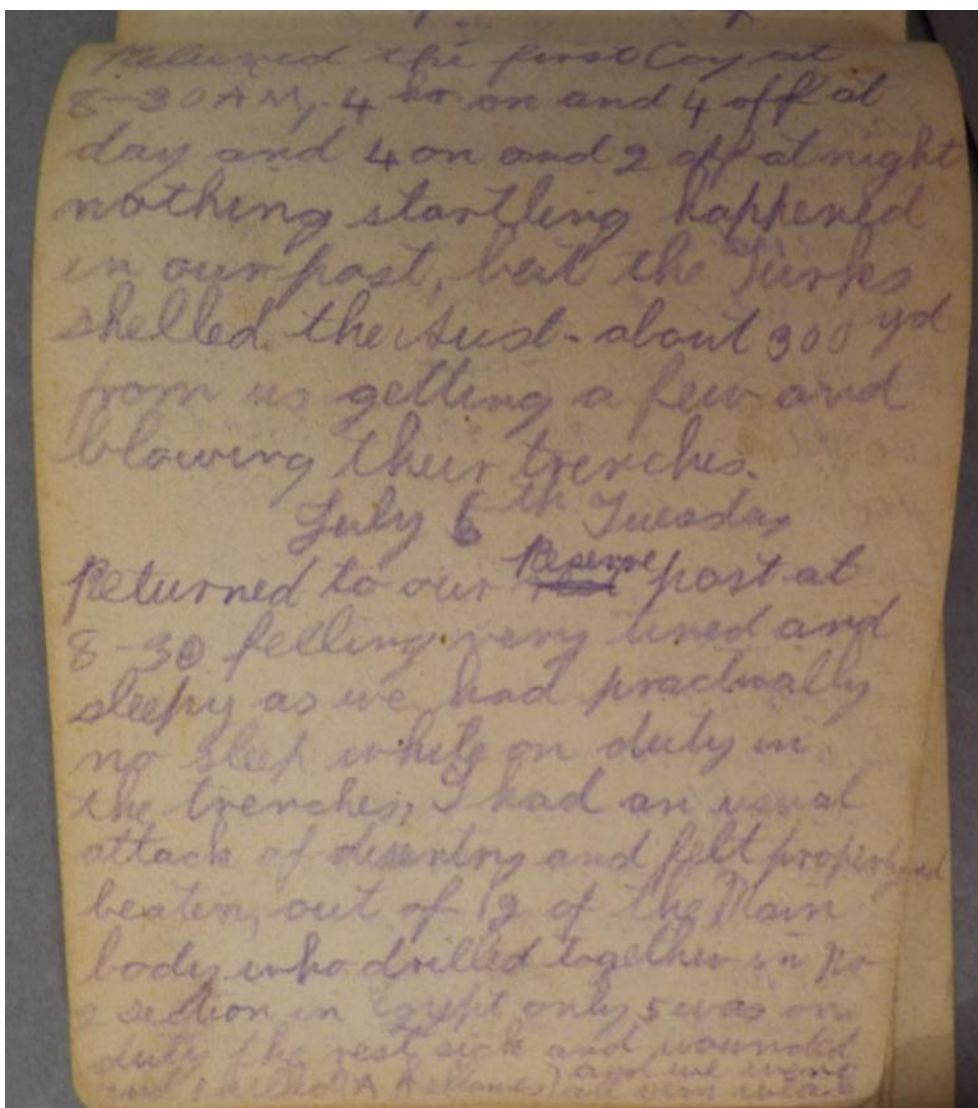 Relieved the first Coy at
8-30 AM, 4 hr on and 4 off at
day and 4 on and 2 off at night
nothing startling happened
in our post, but the Turks
shelled the Aust- about 300 yd
from us getting a few and
blowing their trenches.
July 6th Tuesday
Returned to our Reserve post at
8-30 felling very tired and
sleepy as we had practually
no sleep while on duty in
the trenches, I had an usual
attack of disentry and felt properly
beaten, out of 12 of the Main
body who drilled together in No
2 section in Egypt only 5 was on
duty the rest sick and wounded
and 1 killed (A ) and we
all very weak